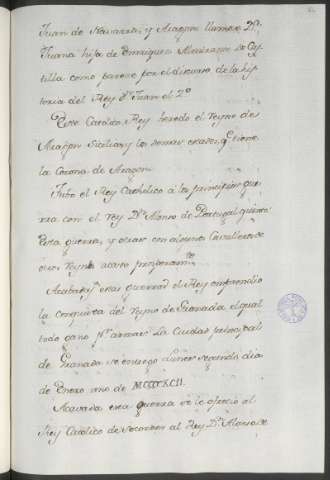 Juan de Navarra, y Aragon llamose Dª.
Juana hija de Enriquez Almirante de Cas
tilla como parece por el discurso de la his
toria del Rey Dn. Juan el 2º
Este Catolico Rey heredo el Reyno de
Aragon Sicilia y los demas estados qe. tiene
la Corona de Aragon.
Tubo el Rey Catholico à los principios gue
rra con el Rey Dn. Alonso de Portugal quinto
esta guerra, y otras con algunos Cavalleros de
estos Reynos acavo prosperamte.
Acabada esas guerras el Rey emprendio
la conquista del Reyno de Granada el qual
todo gano pr. armas. La Ciudad principal
de Granada se entrego Lunes segundo dia
de Enero año de MCCCCXCII.
Acavada esta guerra se le ofrecio al
Rey Catolico de socorrer al Rey Dn. Alonso de